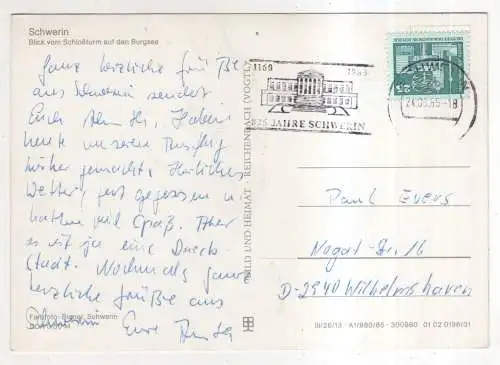 Schwerin
Blick vom Schloßturm auf den Burgsee
Ganz herzliche Grüße
aus Schwerin sendet
Euch
heute unseren Ausflug
hierher gemacht. Herrliches
Wetter, gut gegessen u.
hatten viel Spaß. Aber
es ist ja eine Dreck-
Stadt. Nochmals ganz
herzliche Grüße aus
Schwerin Eure
Schwerin
BILD UND HEIMAT REICHENBACH (VOGTL)
1160 1985
825 JAHRE SCHWERIN
-18
25
Paul Evers
Nogat-Str. 16
D-2940 Wilhelmshaven
III/26/13 A1/980/85 300980 01 02 0196/31